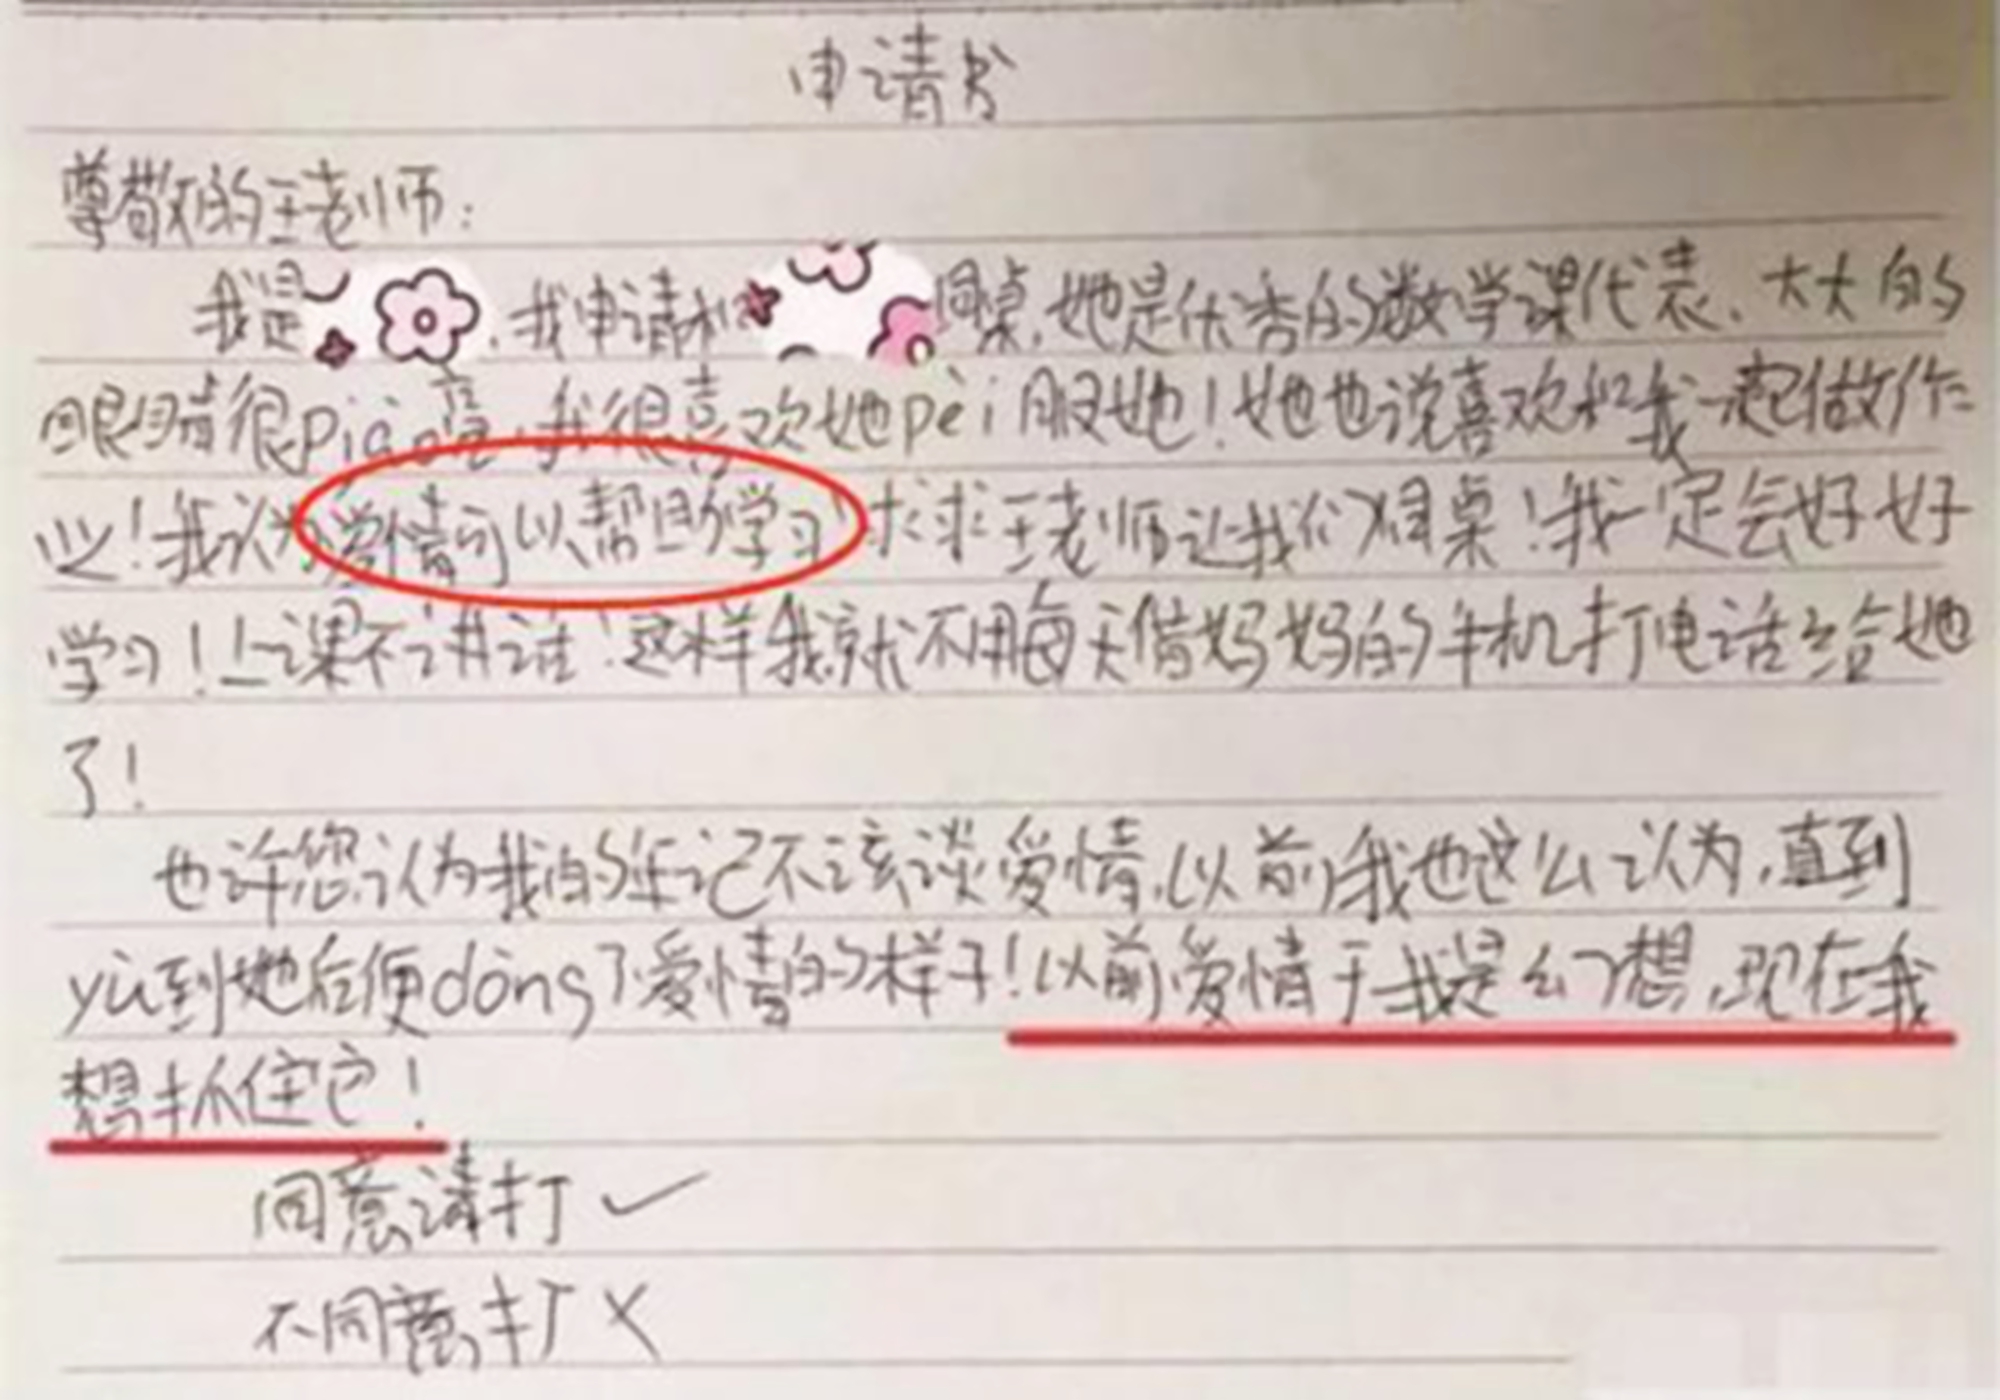 申请书
尊敬的王老师:
我是 ,我申请和 同桌,她是优秀的数学课代表、大大的
眼睛很piào亮,我很喜欢她pèi服她!她也说喜欢和我一起做作
业!我认为爱情可以帮助学习!求求王老师让我们同桌!我一定会好好
学习!上课不讲话!这样我就不用每天借妈妈的手机打电话给她
了!
也许您认为我的年记不该谈爱情,以前我也这么认为,直到
yù到她后便dǒng了爱情的样子!以前爱情于我是幻想,现在我
想抓住它!
同意请打✓
不同意打×